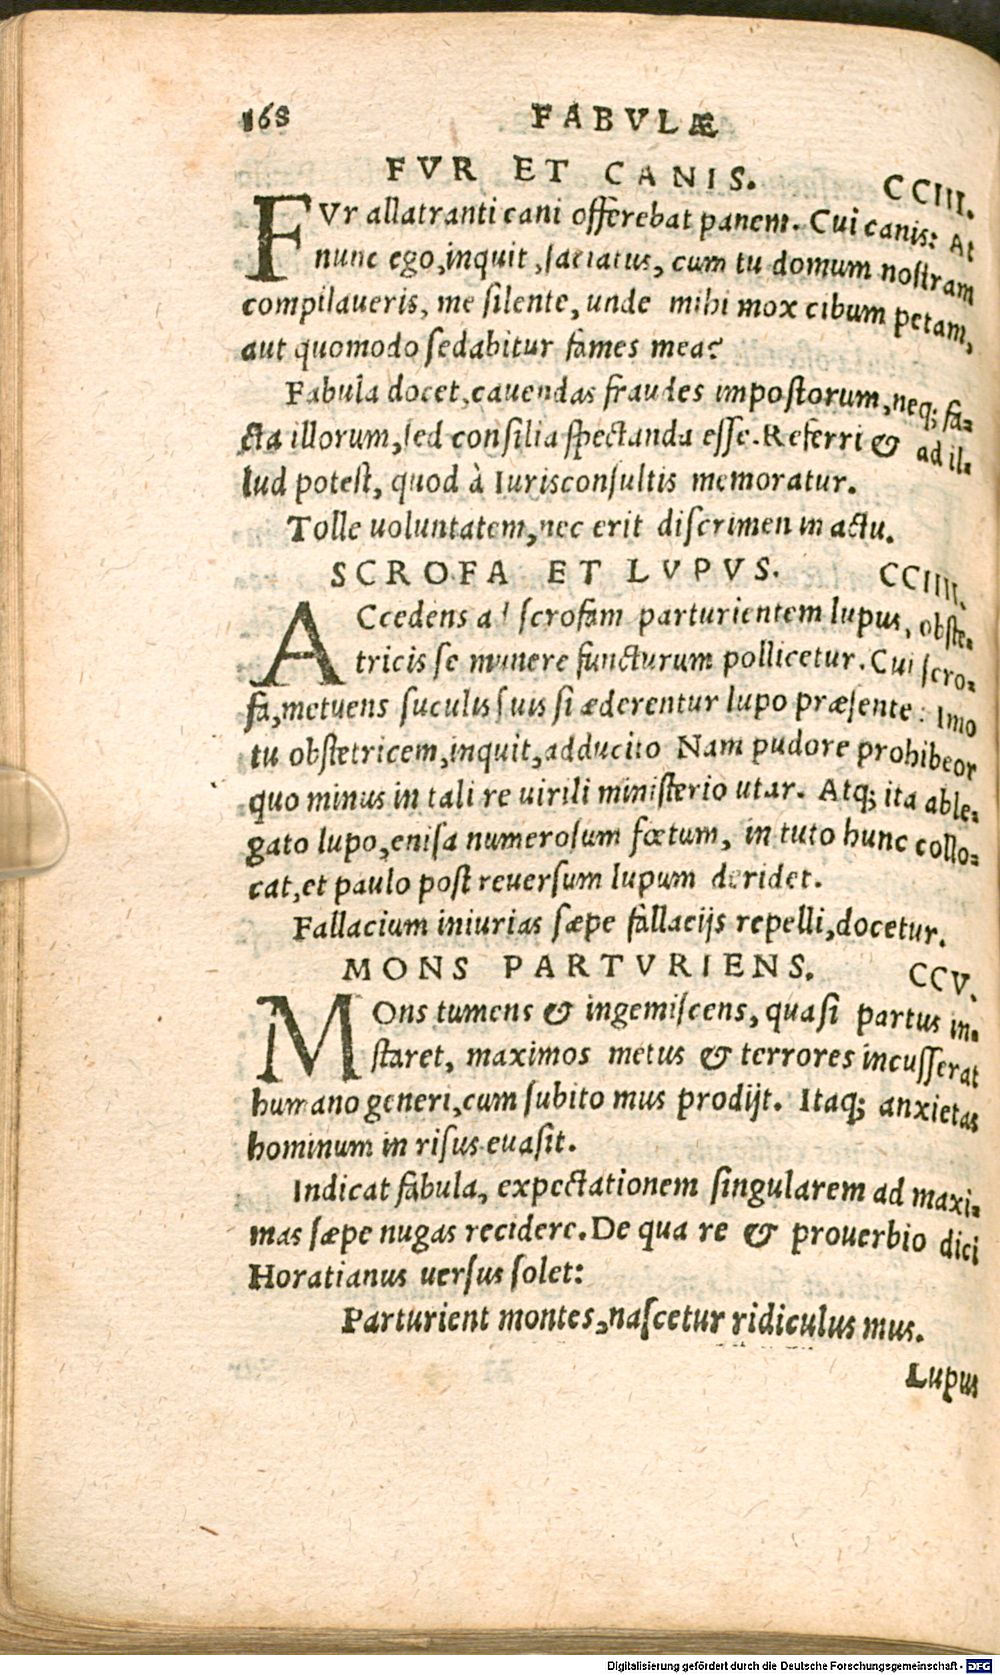 168 FABVLÆ
FVR ET CANIS. CCIII.
FVr allatranti cani offerebat panem. Cui canis: At
nunc ego,inquit,ſatiatus, cum tu domum noſtram
compilaueris, me ſilente, unde mihi mox cibum petam,
aut quomodo ſedabitur fames mea?
Fabula docet,cauendas fraudes impoſtorum,neq; fa-
cta illorum,ſed conſilia ſpectanda eſſe.Referri & ad il-
lud poteſt, quod à Iurisconſultis memoratur.
Tolle uoluntatem,nec erit diſcrimen in actu.
SCROFA ET LVPVS. CCIIII.
ACcedens ad ſcrofam parturientem lupus, obſte-
tricis ſe munere functurum pollicetur. Cui ſcro-
fa,metuens ſuculis ſuis ſi æderentur lupo præſente: Imo
tu obſtetricem,inquit,adducito Nam pudore prohibeor
quo minus in tali re uirili miniſterio utar. Atq; ita able-
gato lupo,eniſa numeroſum fœtum, in tuto hunc collo-
cat,et paulo poſt reuerſum lupum deridet.
Fallacium iniurias ſæpe fallacijs repelli,docetur.
MONS PARTVRIENS. CCV.
MOns tumens & ingemiſcens, quaſi partus in-
ſtaret, maximos metus & terrores incuſſerat
humano generi,cum ſubito mus prodijt. Itaq; anxietas
hominum in riſus euaſit.
Indicat fabula, expectationem ſingularem ad maxi-
mas ſæpe nugas recidere.De qua re & prouerbio dici
Horatianus uerſus ſolet:
Parturient montes,naſcetur ridiculus mus.
Lupus
Digitalisierung gefördert durch die Deutsche Forschungsgemeinschaft - DFG